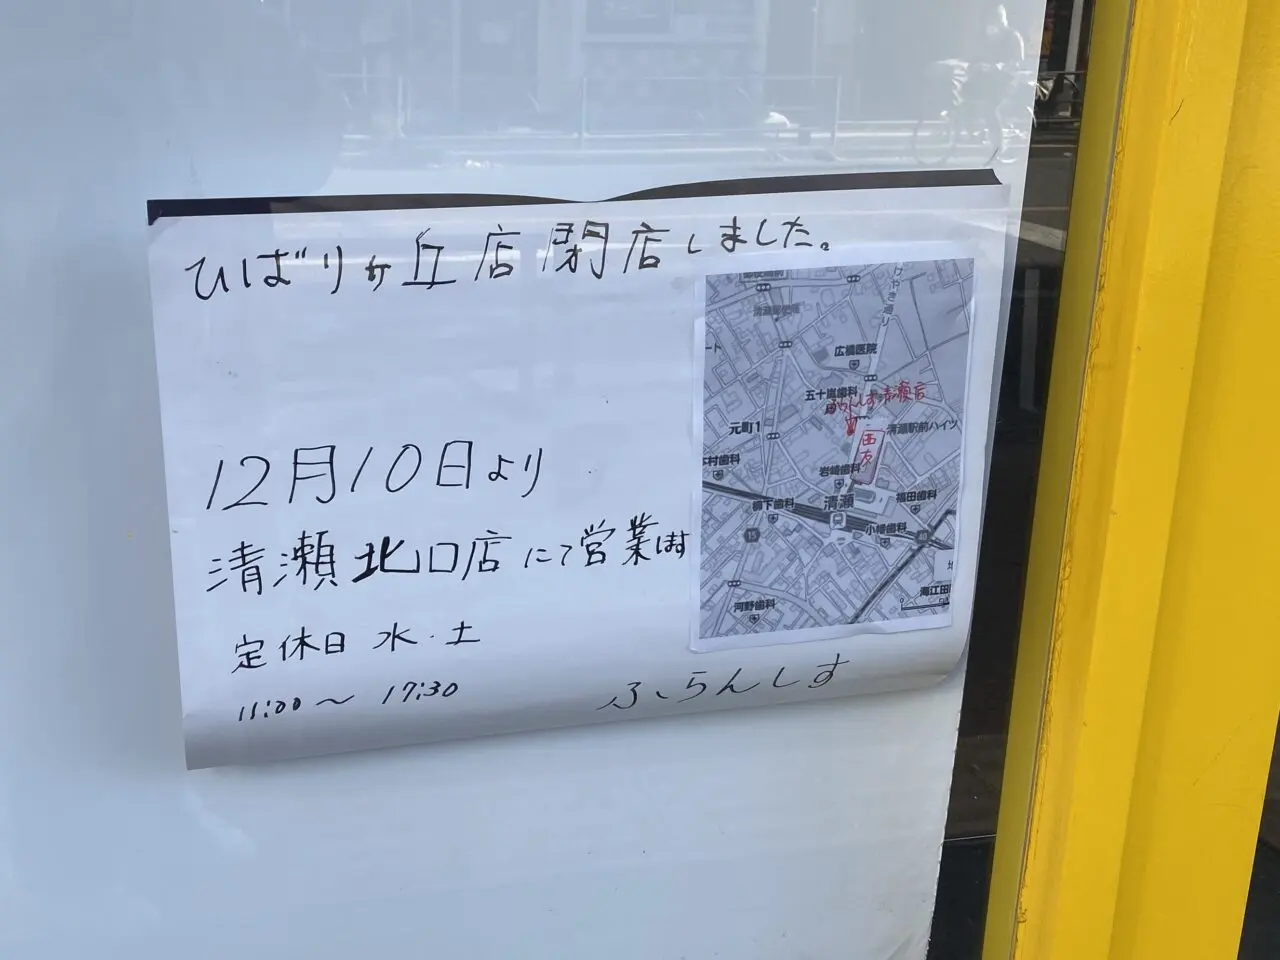 ひばりヶ丘店 閉店しました。
12月10日より
清瀬北口店にて営業します
定休日 水・土
11:00～17:30
ふらんしす
けやき通り
広橋医院
五十嵐歯科
ふらんしす清瀬店
元町1
清瀬駅前ハイツ
西友
木村歯科
岩崎歯科
清瀬
福田歯科
柳下歯科
小幡歯科
15
河野歯科
海江田